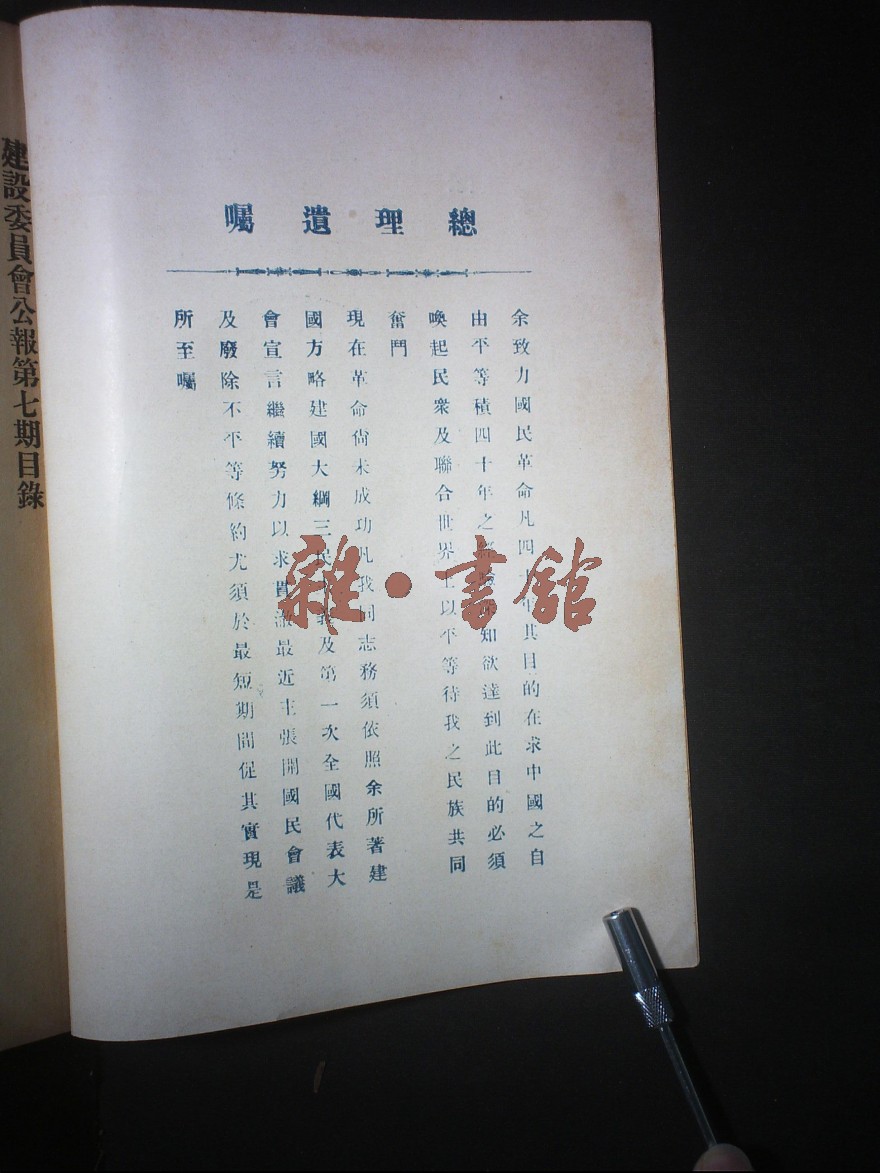 總理遺囑
余致力國民革命凡四十年其目的在求中國之自
由平等積四十年之經驗深知欲達到此目的必須
喚起民衆及聯合世界上以平等待我之民族共同
奮鬥
現在革命尚未成功凡我同志務須依照余所著建
國方略建國大綱三民主義及第一次全國代表大
會宣言繼續努力以求貫澈最近主張開國民會議
及廢除不平等條約尤須於最短期間促其實現是
所至囑
建設委員會公報第七期目錄
雜·書館